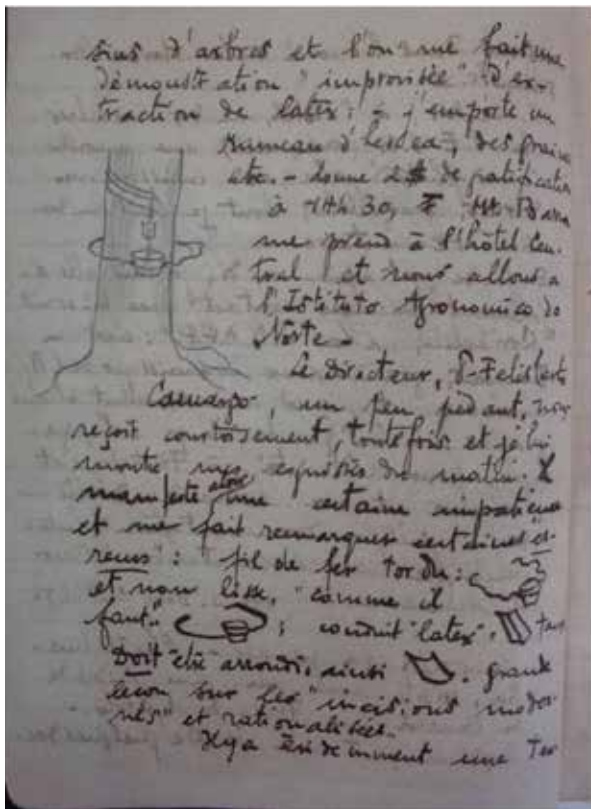 sins d'arbres et l'on me fait une
démonstration "improvisée" d'ex-
traction de latex; - j'emporte un
rameau d'hevea, des graines
etc. - donne 2$ de gratification
à 14h 30, Mr
me prend à l'hôtel Cen-
tral et nous allons a
l'Istituto Agronomico do
Norte -
Le Directeur, Felisberto
Camargo, un peu pédant, nous
reçoit courtoisement, toutefois et je lui
montre mes esquisses du matin. Il
manifeste alors une certaine impatience
et me fait remarquer certaines er-
reurs : fil de fer tordu :
et non lisse, "comme il
faut" ; conduit "latex",
Doit être arrondi, ainsi . grande
leçon sur les "incisions moder-
nes" et rationalisées.
Il y a évidemment une